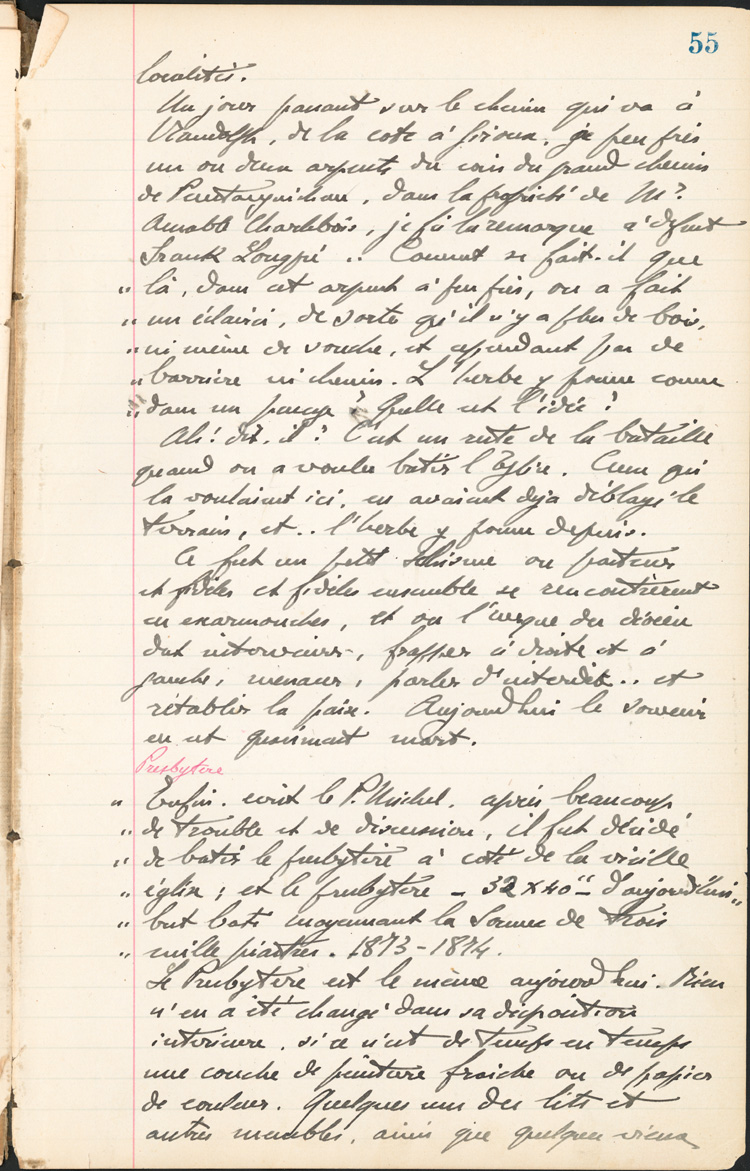 55
localités.
Un jour passant sur le chemin qui va à
Randolph, de la cote à Giroux, à peu près
un ou deux arpents du coin du grand chemin
de Pentanguishene, dans la propriété de Mr
Amable Charlebois, je fis la remarque à défunt
Frank Longpré .. Comment se fait-il que
" là, dans cet arpent à peu près, on a fait
" un éclairci, de sorte qu'il n'y a plus de bois,
" ni même de souche, et cependant pas de
" barrière ni chemin. L'herbe y pousse comme
" dans un pacage? Quelle est l'idée?
Ah! dit-il? C'est un reste de la bataille
quand on a voulu batir l'Eglise. Ceux qui
la voulaient ici, en avaient déja déblayé le
terrain, et .. l'herbe y pousse depuis.
Ce fut un petit schisme ou pasteurs
et fidèles et fidèles ensemble se rencontrèrent
en escarmouches, et ou l'évêque du diocèse
dut intervenir, frapper à droite et à
gauche, menacer, parler d'interdit .. et
rétablir la paix. Aujourd'hui le souvenir
en est quasiment mort.
Presbytere
" Enfin, ecrit le P. Michel, après beaucoup
" de trouble et de discussion, il fut décidé
" de batir le presbytère à coté de la vieille
" église; et le presbytere - 32 x 40" - d'aujourd'hui "
" fut bati moyennant la somme de trois
" mille piastres. 1873-1874.
Le Presbytere est le même aujourd'hui. Rien
n'en a été changé dans sa disposition
interieure, si ce n'est de temps en temps
une couche de peinture fraiche ou de papier
de couleur. Quelques uns des lits et
autres meubles, ainsi que quelques vieux